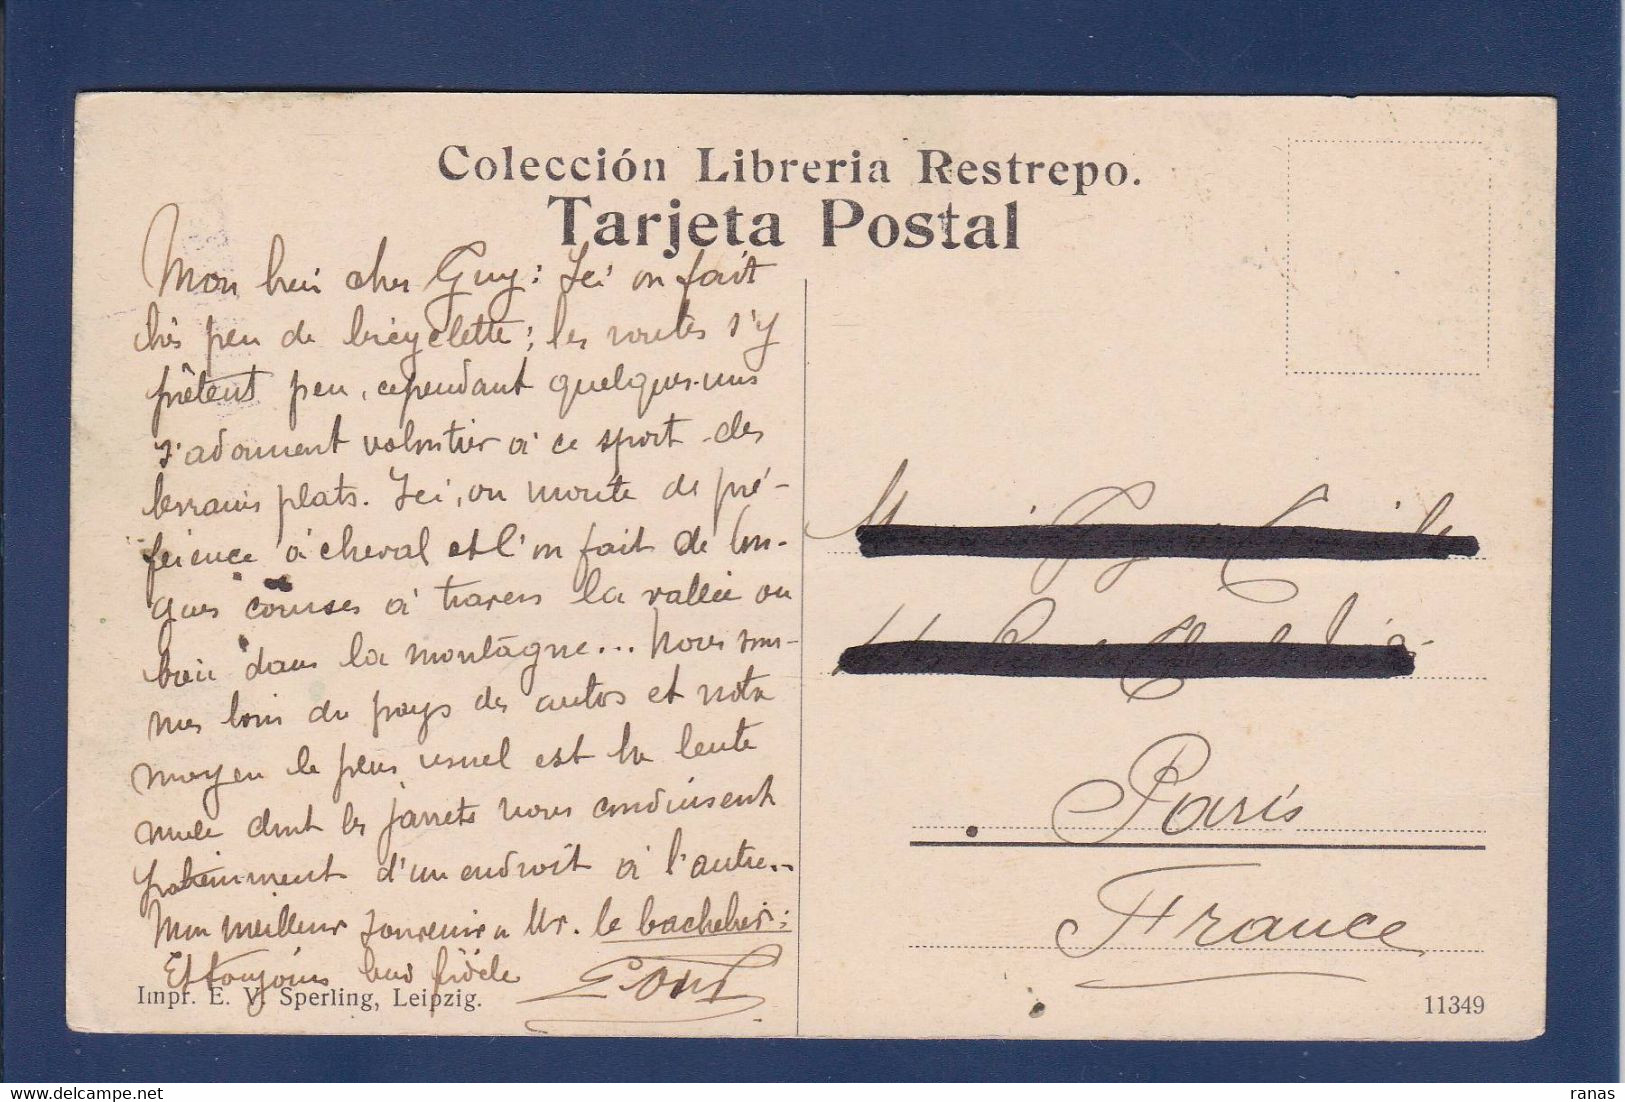 Colección Libreria Restrepo.
Tarjeta Postal
Mon bien cher Guy: Ici on fait
très peu de bicyclette; les routes s'y
prêtent peu, cependant quelques-uns
s'adonnent volontier à ce sport des
terrains plats. Ici, on monte de pré-
férence à cheval et l'on fait de lon-
gues courses à travers la vallée ou
bien dans la montagne... Nous som-
mes loin du pays des autos et notre
moyen le plus usuel est la lente
mule dont les jarrets nous conduisent
patiemment d'un endroit à l'autre..
Mon meilleur souvenir a Mr. le bachelier:
Et toujours bien fidèle
Impr. E. V. Sperling, Leipzig.
Paris
France
11349
delcampe.net
ranas